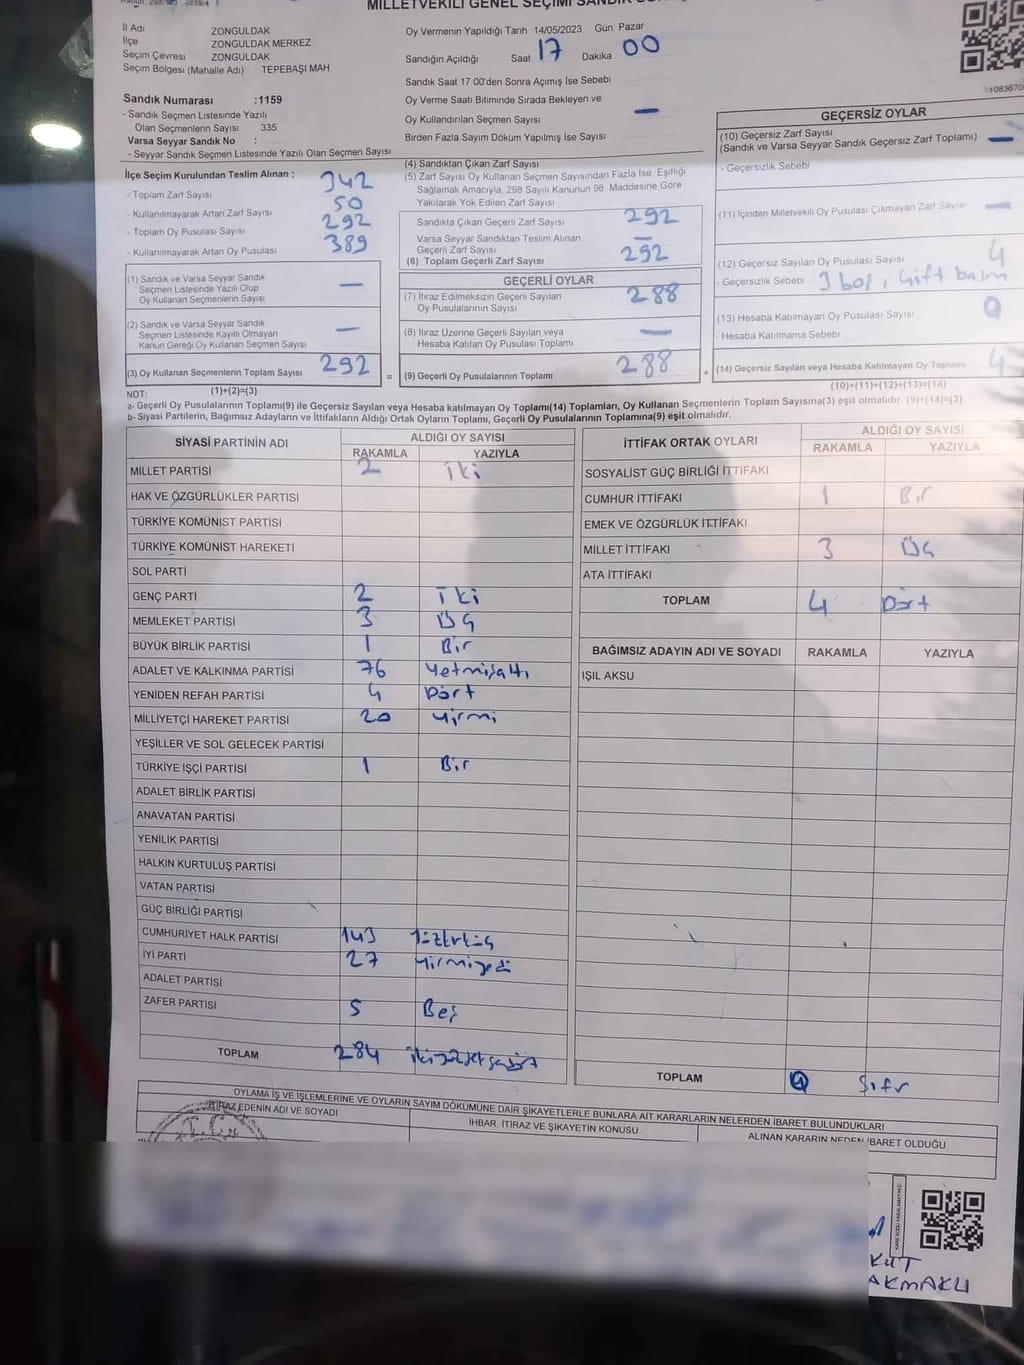 MİLLETVEKİLİ GENEL SEÇİMİ SANDIK
İl Adı ZONGULDAK
İlçe ZONGULDAK MERKEZ
Seçim Çevresi ZONGULDAK
Seçim Bölgesi (Mahalle Adı) TEPEBAŞI MAH
Oy Vermenin Yapıldığı Tarih 14/05/2023 Gün Pazar
Sandığın Açıldığı Saat 17 Dakika 00
Sandık Saat 17 00'den Sonra Açımış İse Sebebi
Sandık Numarası :1159
- Sandık Seçmen Listesinde Yazılı
Olan Seçmenlerin Sayısı 335
Varsa Seyyar Sandık No :
- Seyyar Sandık Seçmen Listesinde Yazılı Olan Seçmen Sayısı
Oy Verme Saati Bitiminde Sırada Bekleyen ve
Oy Kullandırılan Seçmen Sayısı —
Birden Fazla Sayım Döküm Yapılmış İse Sayısı
İlçe Seçim Kurulundan Teslim Alınan :
- Toplam Zarf Sayısı 342
- Kullanılmayarak Artan Zarf Sayısı 50
- Toplam Oy Pusulası Sayısı 292
- Kullanılmayarak Artan Oy Pusulası 389
(1) Sandık ve Varsa Seyyar Sandık
Seçmen Listesinde Yazılı Olup
Oy Kullanan Seçmenlerin Sayısı —
(2) Sandık ve Varsa Seyyar Sandık
Seçmen Listesinde Kayıtlı Olmayan
Kanun Gereği Oy Kullanan Seçmen Sayısı —
(3) Oy Kullanan Seçmenlerin Toplam Sayısı 292
(1)+(2)=(3)
(4) Sandıktan Çıkan Zarf Sayısı
(5) Zarf Sayısı Oy Kullanan Seçmen Sayısından Fazla İse, Eşitliği
Sağlamak Amacıyla, 298 Sayılı Kanunun 98. Maddesine Göre
Yakılarak Yok Edilen Zarf Sayısı
Sandıkta Çıkan Geçerli Zarf Sayısı 292
Varsa Seyyar Sandıktan Teslim Alınan
Geçerli Zarf Sayısı —
(6) Toplam Geçerli Zarf Sayısı 292
GEÇERLİ OYLAR
(7) İtiraz Edilmeksizin Geçerli Sayılan
Oy Pusulalarının Sayısı 288
(8) İtiraz Üzerine Geçerli Sayılan veya
Hesaba Katılan Oy Pusulası Toplamı —
= (9) Geçerli Oy Pusulalarının Toplamı 288
1083670
GEÇERSİZ OYLAR
(10) Geçersiz Zarf Sayısı
(Sandık ve Varsa Seyyar Sandık Geçersiz Zarf Toplamı) —
- Geçersizlik Sebebi
(11) İçinden Milletvekili Oy Pusulası Çıkmayan Zarf Sayısı —
(12) Geçersiz Sayılan Oy Pusulası Sayısı 4
- Geçersizlik Sebebi 3 boş, 1 çift basım
(13) Hesaba Katılmayan Oy Pusulası Sayısı 0
- Hesaba Katılmama Sebebi
+ (14) Geçersiz Sayılan veya Hesaba Katılmayan Oy Toplamı 4
(10)+(11)+(12)+(13)=(14)
NOT:
a- Geçerli Oy Pusulalarının Toplamı(9) ile Geçersiz Sayılan veya Hesaba katılmayan Oy Toplamı(14) Toplamları, Oy Kullanan Seçmenlerin Toplam Sayısına(3) eşit olmalıdır. (9)+(14)=(3)
b- Siyasi Partilerin, Bağımsız Adayların ve İttifakların Aldığı Ortak Oyların Toplamı, Geçerli Oy Pusulalarının Toplamına(9) eşit olmalıdır.
SİYASİ PARTİNİN ADI ALDIĞI OY SAYISI
RAKAMLA YAZIYLA
MİLLET PARTİSİ 2 İki
HAK VE ÖZGÜRLÜKLER PARTİSİ
TÜRKİYE KOMÜNİST PARTİSİ
TÜRKİYE KOMÜNİST HAREKETİ
SOL PARTİ
GENÇ PARTİ 2 İki
MEMLEKET PARTİSİ 3 Üç
BÜYÜK BİRLİK PARTİSİ 1 Bir
ADALET VE KALKINMA PARTİSİ 76 Yetmişaltı
YENİDEN REFAH PARTİSİ 4 Dört
MİLLİYETÇİ HAREKET PARTİSİ 20 Yirmi
YEŞİLLER VE SOL GELECEK PARTİSİ
TÜRKİYE İŞÇİ PARTİSİ 1 Bir
ADALET BİRLİK PARTİSİ
ANAVATAN PARTİSİ
YENİLİK PARTİSİ
HALKIN KURTULUŞ PARTİSİ
VATAN PARTİSİ
GÜÇ BİRLİĞİ PARTİSİ
CUMHURİYET HALK PARTİSİ 143
İYİ PARTİ 27 Yirmiyedi
ADALET PARTİSİ
ZAFER PARTİSİ 5 Beş
TOPLAM 284
İTTİFAK ORTAK OYLARI ALDIĞI OY SAYISI
RAKAMLA YAZIYLA
SOSYALİST GÜÇ BİRLİĞİ İTTİFAKI
CUMHUR İTTİFAKI 1 Bir
EMEK VE ÖZGÜRLÜK İTTİFAKI
MİLLET İTTİFAKI 3 Üç
ATA İTTİFAKI
TOPLAM 4 Dört
BAĞIMSIZ ADAYIN ADI VE SOYADI RAKAMLA YAZIYLA
IŞIL AKSU
TOPLAM 0 Sıfır
OYLAMA İŞ VE İŞLEMLERİNE VE OYLARIN SAYIM DÖKÜMÜNE DAİR ŞİKAYETLERLE BUNLARA AİT KARARLARIN NELERDEN İBARET BULUNDUKLARI
İTİRAZ EDENİN ADI VE SOYADI
İHBAR, İTİRAZ VE ŞİKAYETİN KONUSU
ALINAN KARARIN NEDEN İBARET OLDUĞU
T.C.
KUT
AKMAKLI